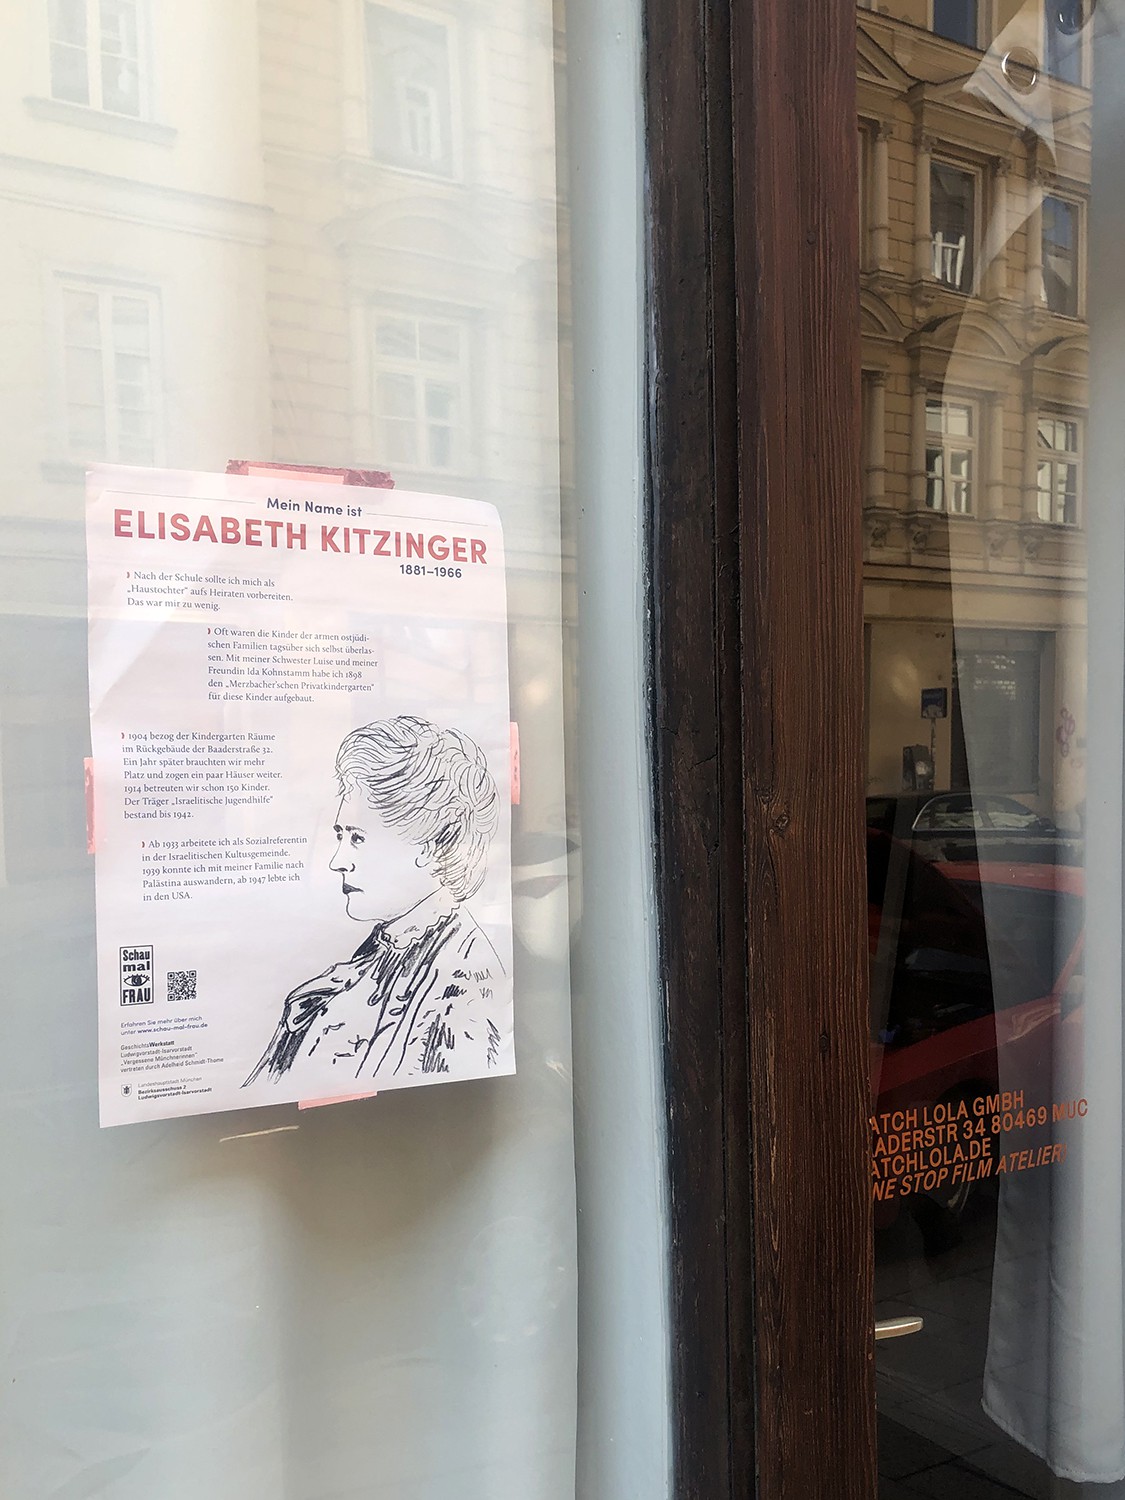 Mein Name ist
ELISABETH KITZINGER
1881–1966
Nach der Schule sollte ich mich als
„Haustochter“ aufs Heiraten vorbereiten.
Das war mir zu wenig.
Oft waren die Kinder der armen ostjüdi-
schen Familien tagsüber sich selbst überlas-
sen. Mit meiner Schwester Luise und meiner
Freundin Ida Kohnstamm habe ich 1898
den „Merzbacher’schen Privatkindergarten“
für diese Kinder aufgebaut.
1904 bezog der Kindergarten Räume
im Rückgebäude der Baaderstraße 32.
Ein Jahr später brauchten wir mehr
Platz und zogen ein paar Häuser weiter.
1914 betreuten wir schon 150 Kinder.
Der Träger „Israelitische Jugendhilfe“
bestand bis 1942.
Ab 1933 arbeitete ich als Sozialreferentin
in der Israelitischen Kultusgemeinde.
1939 konnte ich mit meiner Familie nach
Palästina auswandern, ab 1947 lebte ich
in den USA.
Schau
mal
FRAU
Erfahren Sie mehr über mich
unter www.schau-mal-frau.de
GeschichtsWerkstatt
Ludwigsvorstadt-Isarvorstadt
„Vergessene Münchnerinnen“
vertreten durch Adelheid Schmidt-Thomé
Landeshauptstadt München
Bezirksausschuss 2
Ludwigsvorstadt-Isarvorstadt
ATCH LOLA GMBH
AADERSTR 34 80469 MUC
ATCHLOLA.DE
NE STOP FILM ATELIER